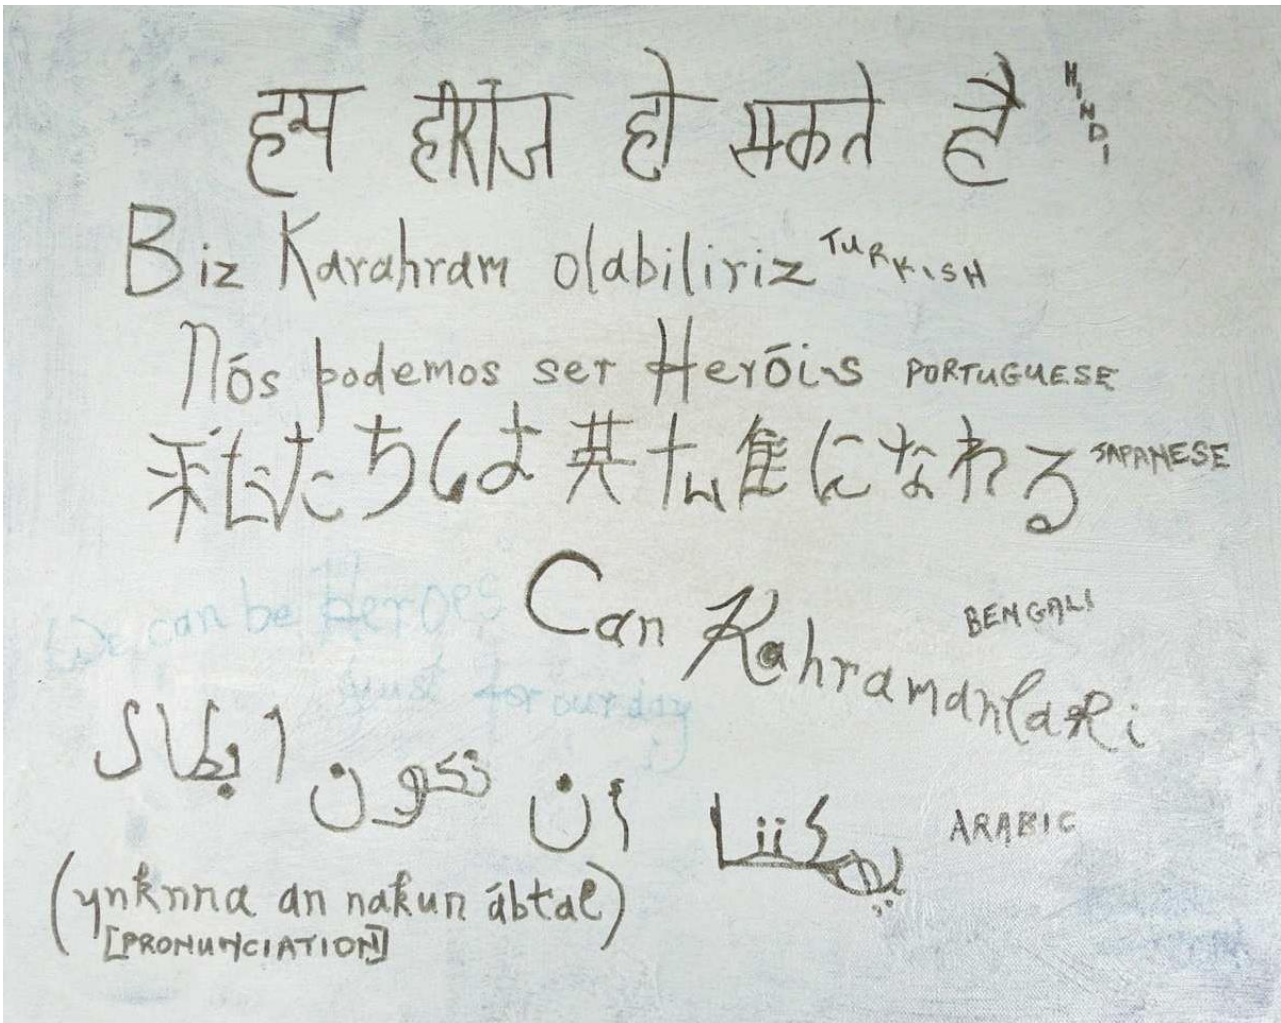 हम हीरोज हो सकते है HINDI
Biz Karahram olabiliriz TURKISH
Nós podemos ser Heróis PORTUGUESE
私たちは英雄になれる JAPANESE
We can be HerOes
just for our day
Can KahramanlaRi BENGALI
يمكننا أن نكون ابطال ARABIC
(ynknna an nakun ábtal)
[PRONUNCIATION]